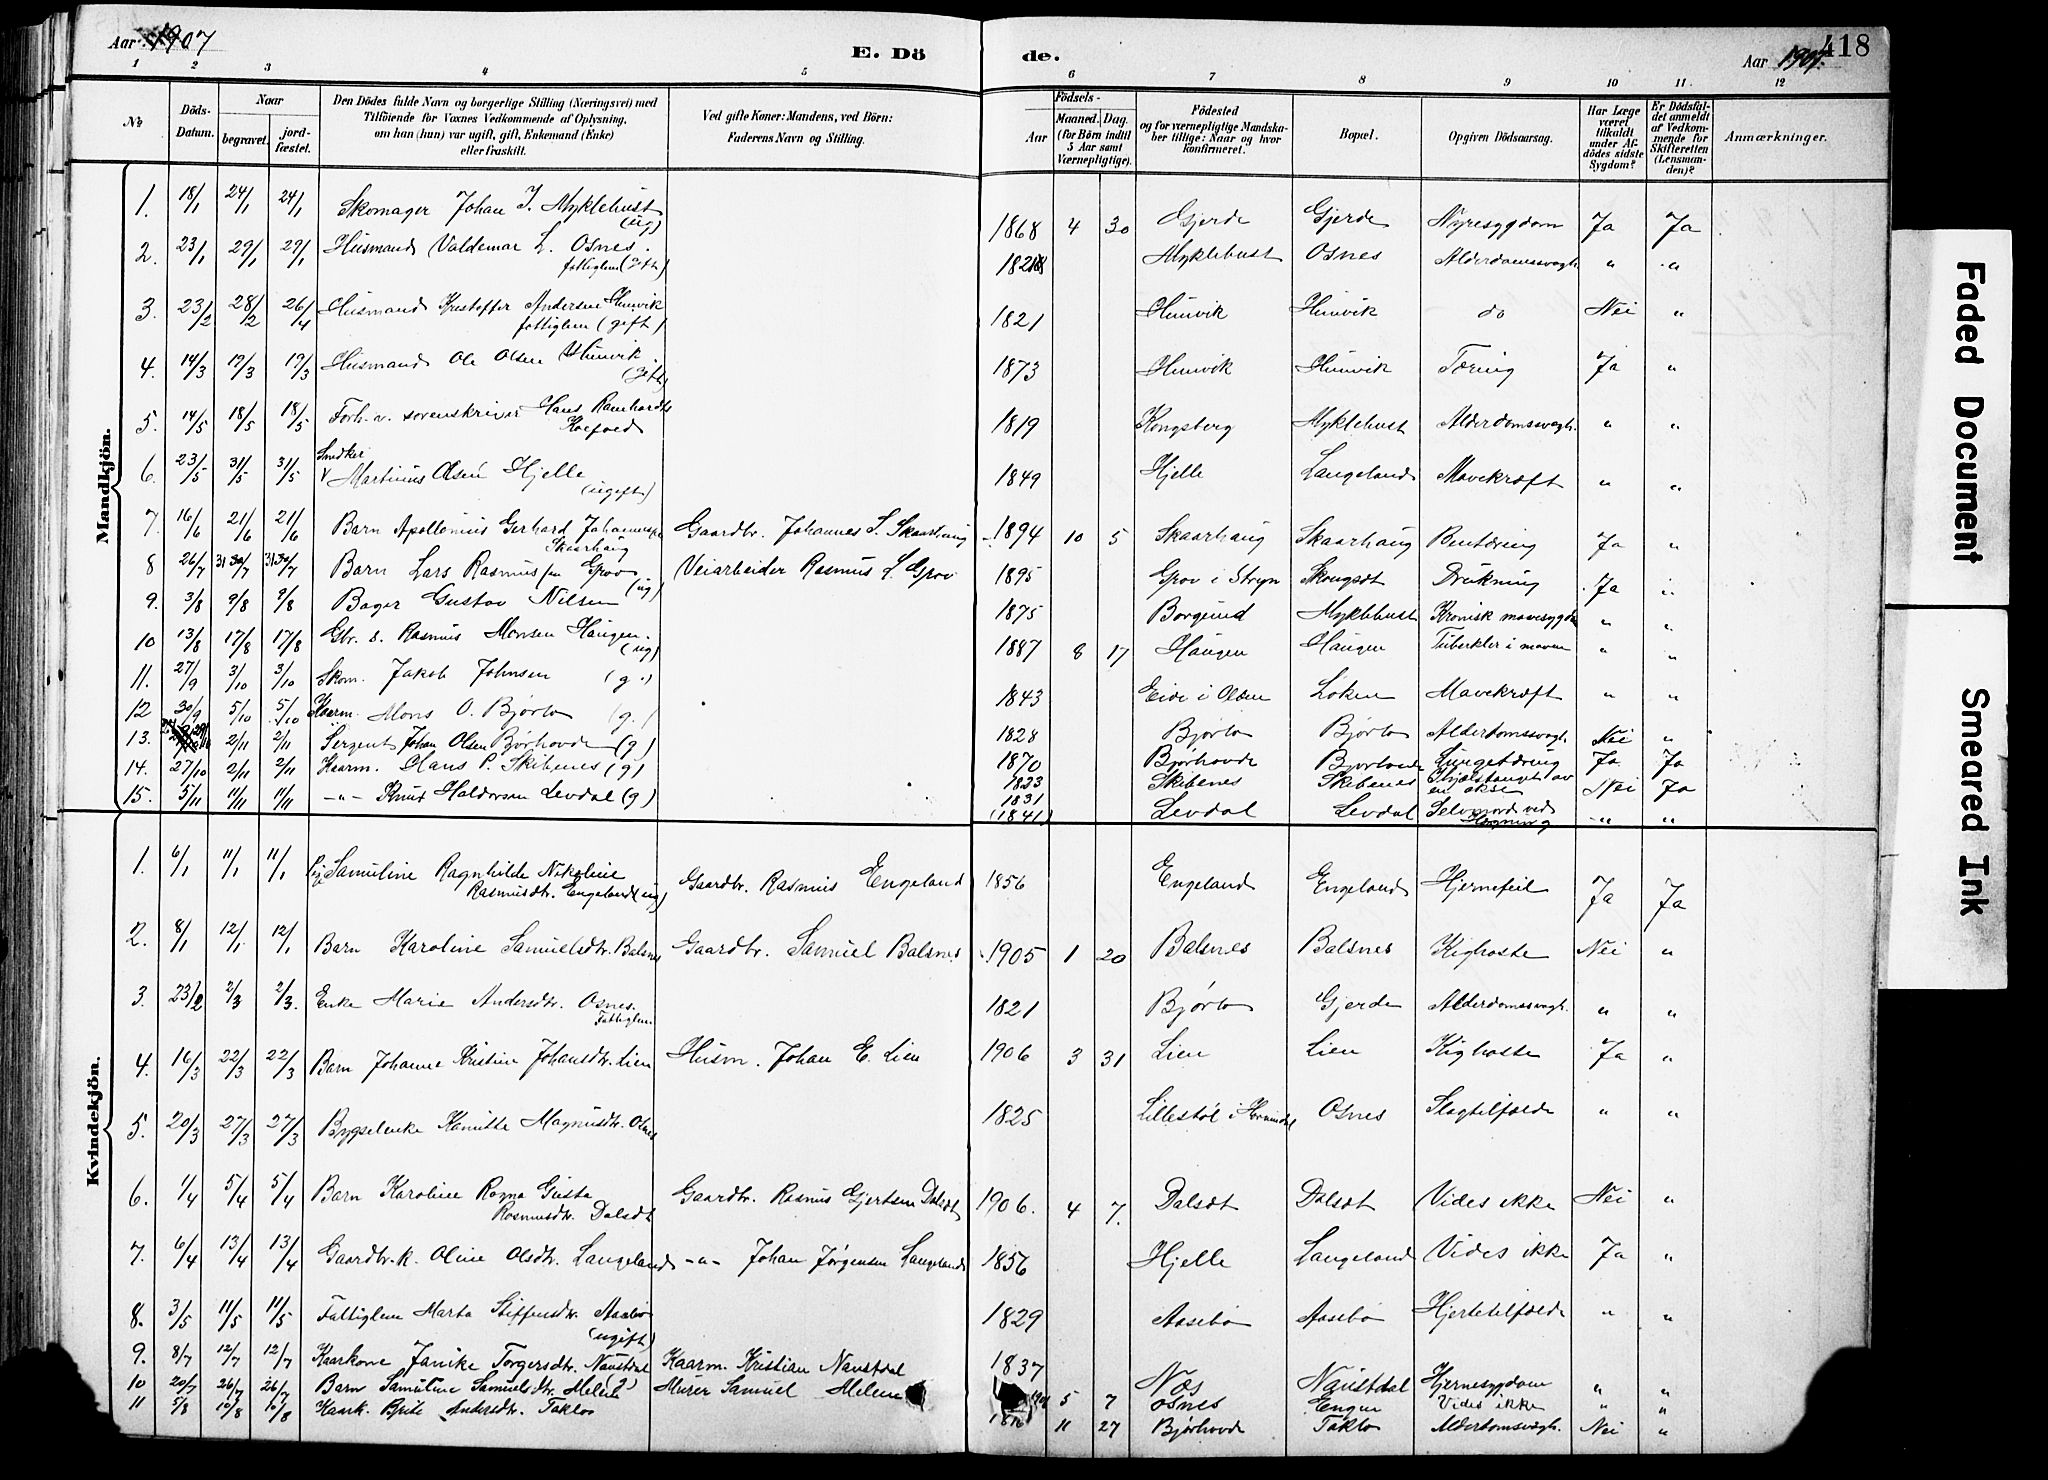 Aar 1907
E. Dö
de.
Aar 1907.
418
1 2 3 4 5 6 7 8 9 10 11. 12
№
Döds-Datum.
Naar
begravet.
jord-fæstet.
Den Dödes fulde Navn og borgerlige Stilling (Næringsvei) med
Tilföiende for Voxnes Vedkommende af Oplysning,
om han (hun) var ugift, gift, Enkemand (Enke)
eller fraskilt.
Ved gifte Koner: Mandens, ved Börn:
Faderens Navn og Stilling.
Födsels-
Aar
Maaned.
Dag.
(for Börn indtil
5 Aar samt
Værnepligtige).
Födested
og for værnepligtige Mandska-
ber tillige: Naar og hvor
konfirmeret.
Bopæl.
Opgiven Dödsaarsag.
Har Læge
været
tilkaldt
under Af-
dödes sidste
Sygdom?
Er Dödsfal-
det anmeldt
af Vedkom-
mende for
Skifteretten
(Lensman-
den)?
Anmærkninger.
Mandkjön.
1. 18/1 24/1 24/1 Skomager Johan J. Myklebust (ug) 1868 4 30 Gjerde Gjerde Nyresygdom Ja Ja
2. 23/1 29/1 29/1 Husmand Valdemar L. Osnes. fattiglem (gift) Myklebust Osnes Alderdomssvagh. " "
3. 23/2 28/2 26/4 Husmand Kristoffer Andersen Humvik fattiglem (gift) 1821 Humvik Humvik do Nei "
4. 14/3 19/3 19/3 Husmand Ole Olsen Humvik (gift) 1873 Humvik Humvik Tæring Ja "
5. 14/5 18/5 18/5 Forh. v. sorenskriver Hans Ramhardt Koefoed 1819 Kongsberg Myklebust Alderdomssvagh. " "
6. 23/5 31/5 31/5 Snedker Martinus Olsen Hjelle (ugift) 1849 Hjelle Langeland Mavekræft " "
7. 16/6 21/6 21/6 Barn Apollonius Gerhard Johannes Skaarhaug Gaardbr. Johannes S. Skaarhaug 1894 10 5 Skaarhaug Skaarhaug Bentæring Ja "
8 26/7 31/7 31/7 Barn Lars Rasmussen Grov Veiarbeider Rasmus L. Grov 1895 Grov i Stryn Skougsdt Drukning Ja "
9. 3/8 9/8 9/8 Bager Gustav Nilsen (ug) 1875 Borgund Myklebust Kronisk mavesygdom " "
10 13/8 17/8 17/8 Gbr. s. Rasmus Monsen Haugen. (ug) 1887 8 17 Haugen Haugen Tuberkler i maven " "
11. 27/9 3/10 3/10 Skom. Jakob Johnsen (g.) 1843 Eide i Olden Loken Mavekræft " "
12 30/9 5/10 5/10 Kaarm. Mons O. Bjørlo (g.) 1828 Bjørlo Bjørlo Alderdomssvagh. Nei "
13. 2/11 2/11 Sergent Johan Olsen Bjørhovde (g) 1870 Bjørhovde Bjørhovde Lungetæring Ja Ja
14. 27/10 2/11 2/11 Kaarm. Hans P. Skibenes (g) 1823 Skibenes Skibenes Ihjelstanget av en okse Nei Ja
15. 5/11 11/11 11/11 -"- Knud Haldorsen Levdal (g) 1831 (1841) Levdal Levdal Selvmord ved Hængning " "
Kvindekjön.
1. 6/1 11/1 11/1 Pig Samuline Ragnhilde Nikoline Rasmusdtr. Engeland (ug) Gaardbr. Rasmus Engeland 1856 Engeland Engeland Hjernefeil Ja Ja
2. 8/1 12/1 12/1 Barn Karoline Samuelsdtr. Balsnes Gaardbr. Samuel Balsnes 1905 1 20 Balsnes Balsnes Kighoste Nei "
3. 23/2 2/3 2/3. Enke Marie Andersdtr. Osnes. Fattiglem. 1821 Bjørlo Gjerde Alderdomssvagh. " "
4. 16/3 22/3 22/3 Barn Johanne Kristine Johansdtr. Lien Husm. Johan E. Lien 1906 3 31 Lien Lien Kighoste Ja "
5. 20/3 27/3 27/3 Bygselenke Kamitte Magnusdtr. Osnes 1825 Lillestøl i Hornindal Osnes Slagtilfælde " "
6. 1/4 5/4 5/4 Barn Karoline Ragna Gusta Rasmusdtr. Dalsdt Gaardbr. Rasmus Gjertsen Dalsdt 1906. 4 7. Dalsdt Dalsdt Vides ikke Nei "
7. 6/4 13/4 13/4 Gaardbr. k. Oline Olsdtr. Langeland -"- Johan Jørgensen Langeland 1856 Hjelle Langeland Vides ikke Ja "
8. 3/5 11/5 11/5 Fattiglem Marta Steffensdtr. Aasebø (ugift) 1829 Aasebø Aasebø Hjertetilfælde " "
9. 8/7 12/7 12/7 Kaarkone Janike Torgersdtr. Naustdal Kaarm. Kristian Naustdal 1837 Nos Naustdal Hjernesygdom " "
10 20/7 26/7 26/7 Barn Samuline Samuelsdtr. Melen (?) Murer Samuel Melen 5 7 Osnes Engen Vides ikke " "
11 5/8 10/8 10/8 Kaark. Brite Andersdtr. Taklo 11 27 Bjørhovde Taklo Alderdomssvagh. Nei "
Faded Document
Smeared Ink